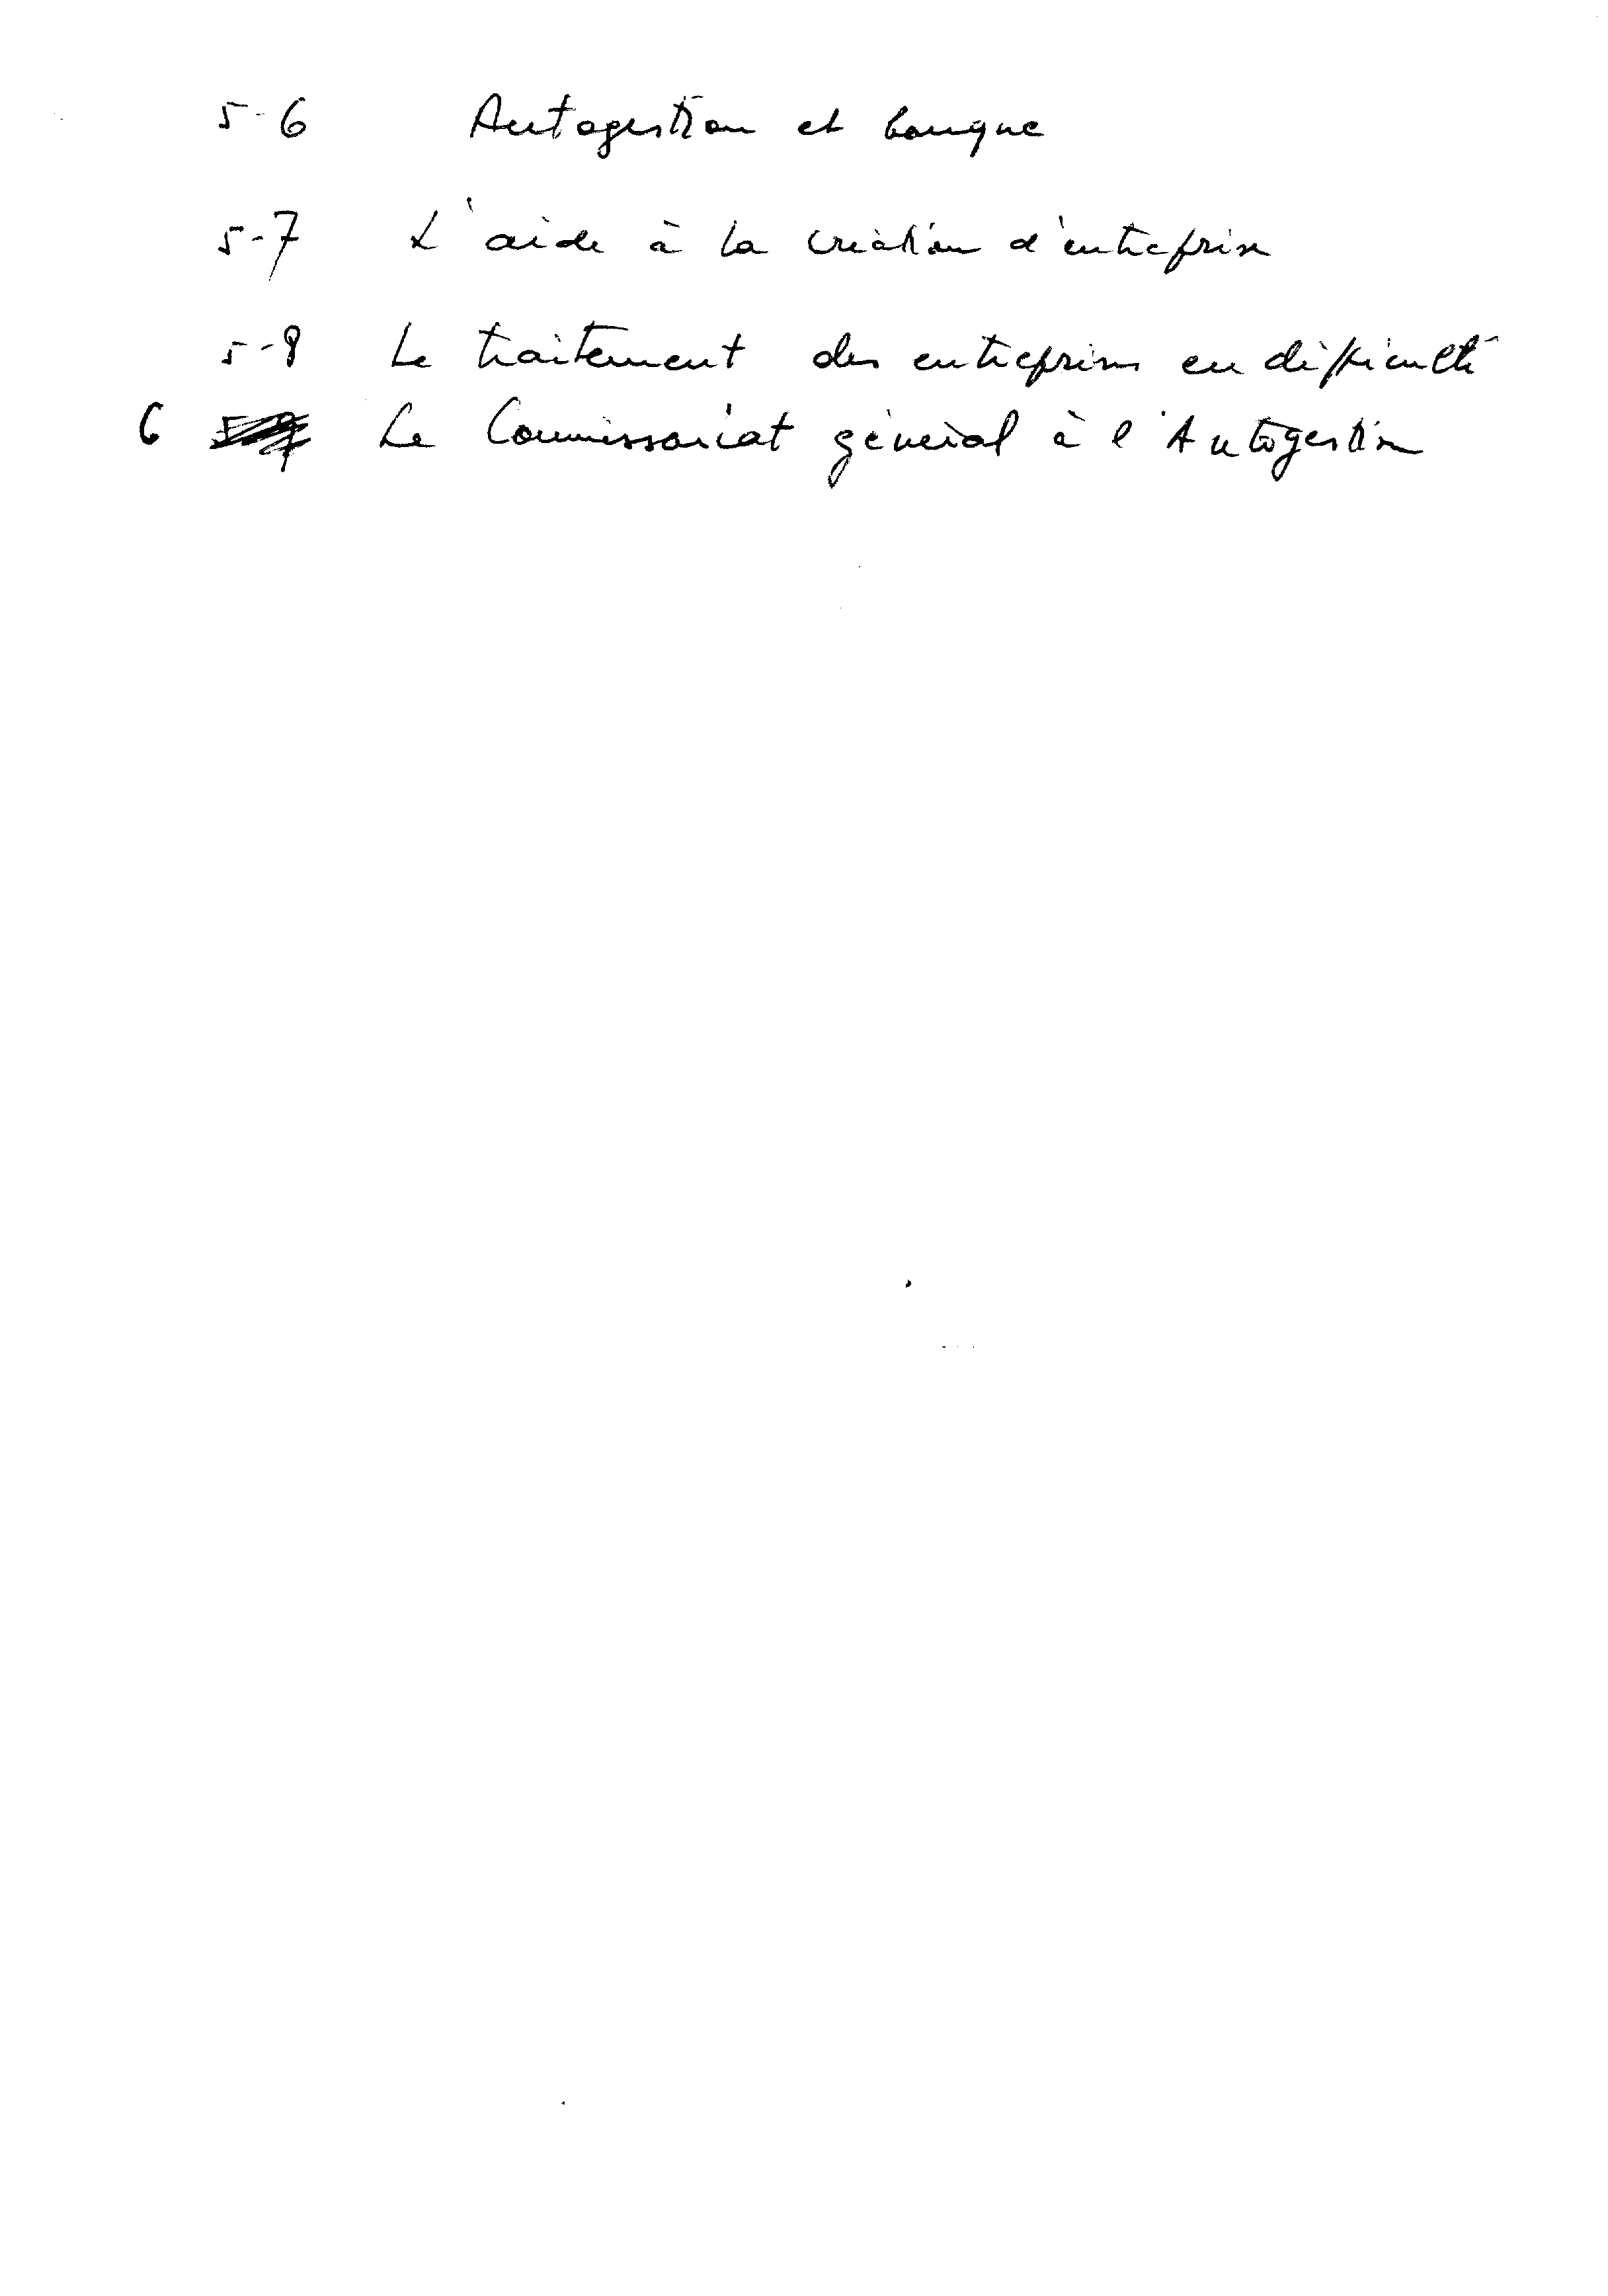 5-6 Autogestion et banque
5-7 L'aide à la création d'entreprise
5-8 Le traitement des entreprises en difficulté
6 Le Commissariat général à l'Autogestion